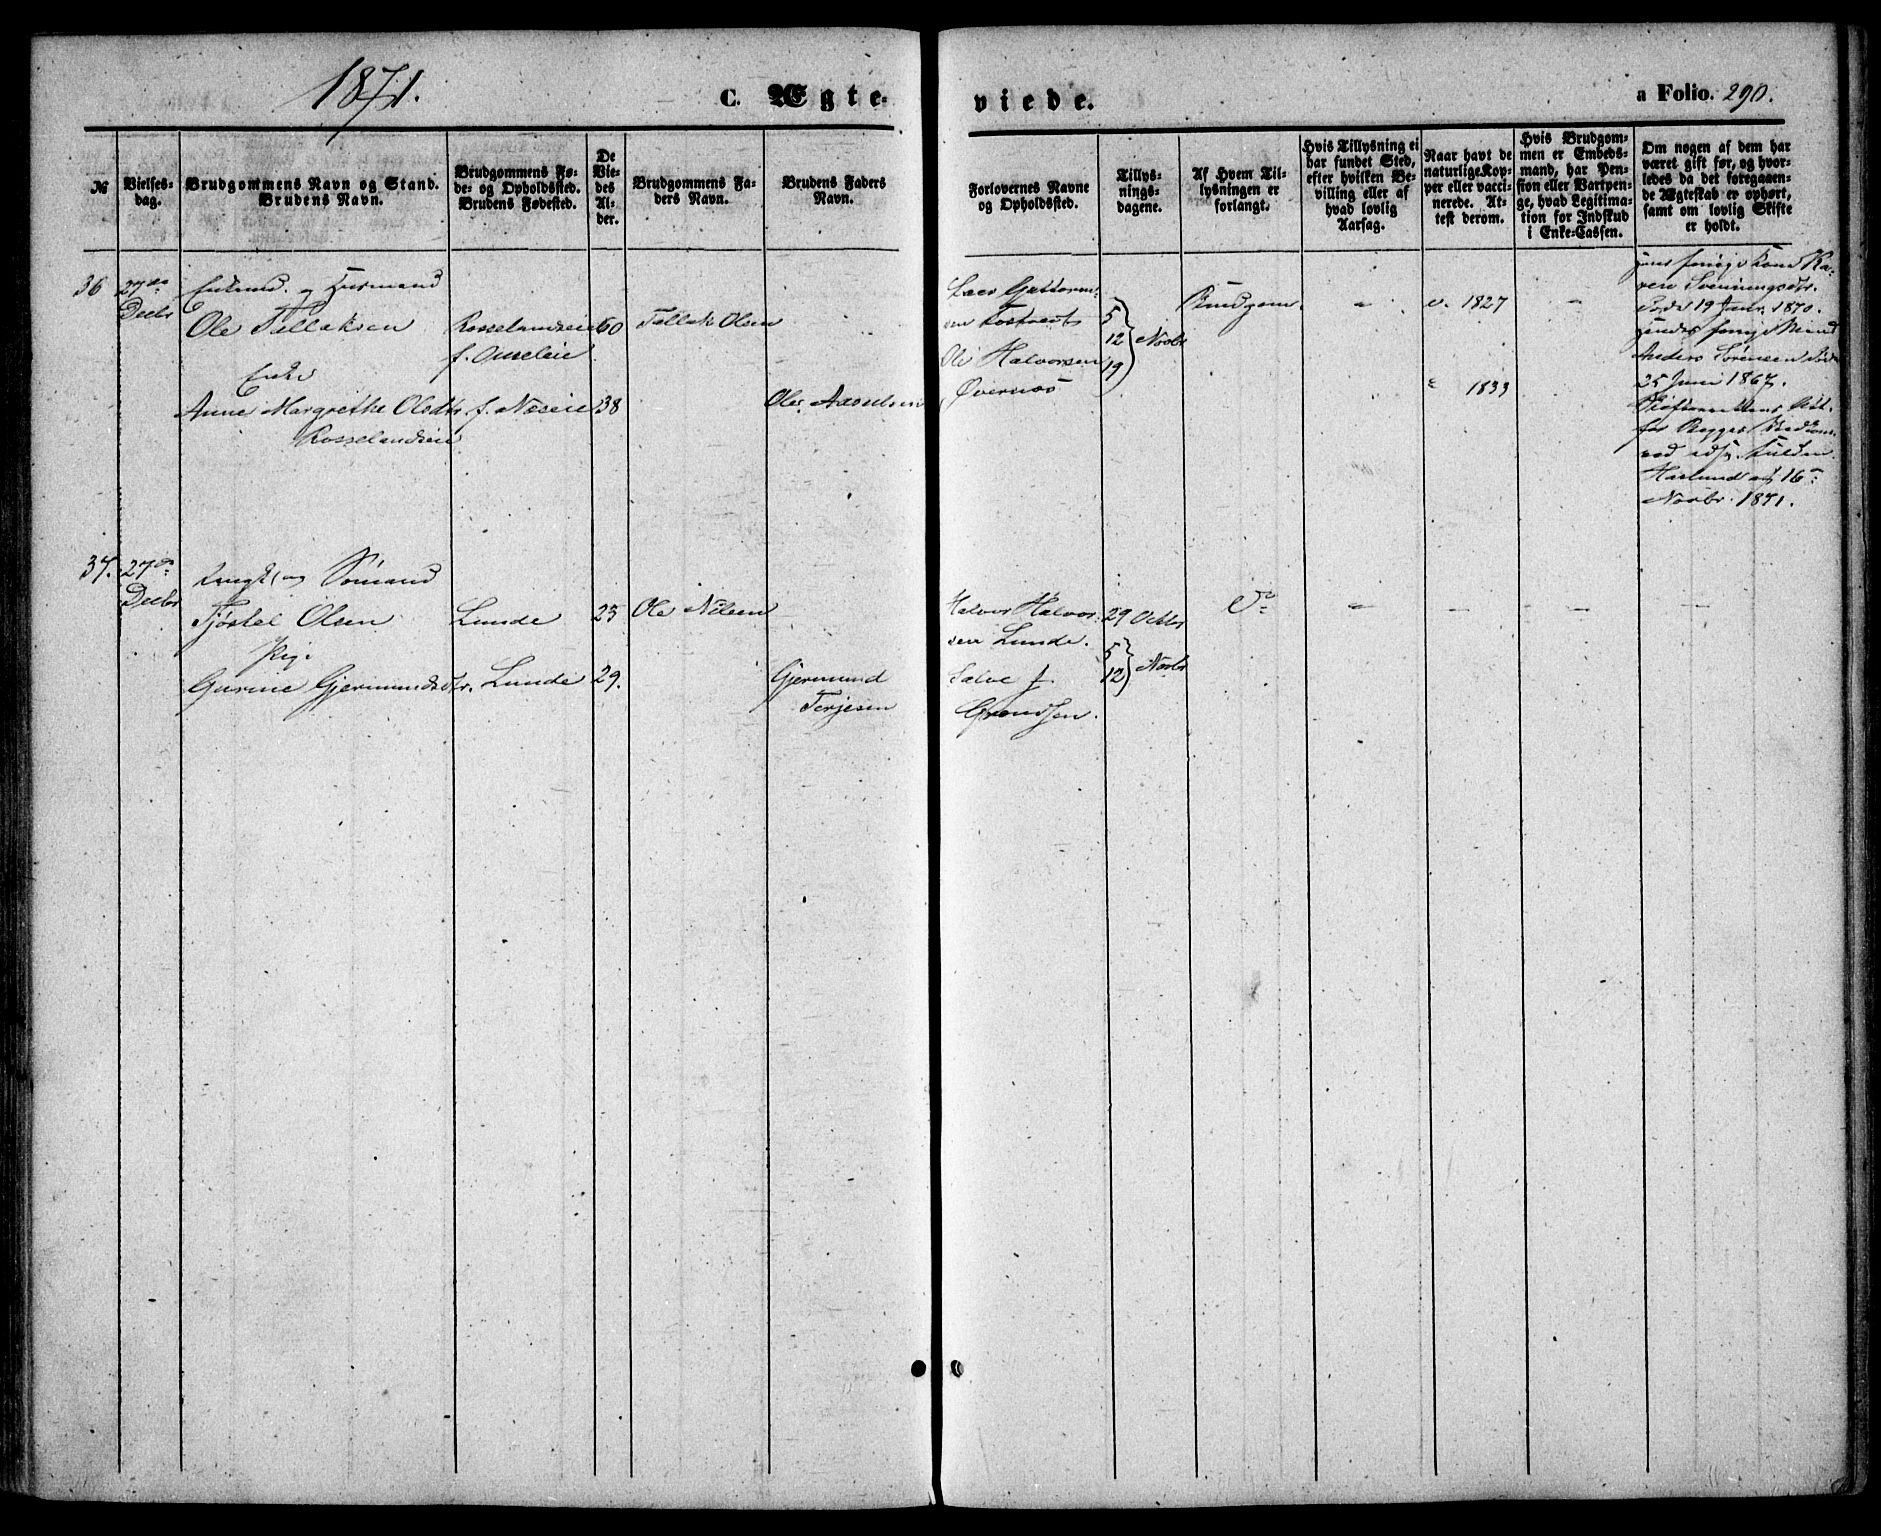 1871.
C. Ægte-
viede.
a Folio. 290.
№
Vielses-
dag.
Brudgommens Navn og Stand.
Brudens Navn.
Brudgommens Fø-
de- og Opholdssted.
Brudens Fødested.
De
Vie-
des
Al-
der.
Brudgommens Fa-
ders Navn.
Brudens Faders
Navn.
Forlovernes Navne
og Opholdssted.
Tillys-
nings-
dagene.
Af Hvem Til-
lysningen er
forlangt.
Hvis Tillysning ei
har fundet Sted,
efter hvilken Be-
villing eller af
hvad lovlig
Aarsag.
Naar havt de
naturlige Kop-
per eller vacci-
nerede. At-
test derom.
Hvis Brudgom-
men er Embeds-
mand, har Pen-
sion eller Vartpen-
ge, hvad Legitima-
tion for Indskud
i Enke-Cassen.
Om nogen af dem har
været gift før, og hvor-
ledes da det foregaaen-
de Ægteskab er ophørt,
samt om lovlig Skifte
er holdt.
36
27de
Decbr
Enkemd. og Huusmand
Ole Tellaksen
Rosselandseie
f. Omseleie
60
Tellak Olsen
Enke
Anne Margrethe Olsdtr.
Rosselandseie
f. Næseie
38
Ole Axselsen
Lars Guttorm-
sen
Ole Halvorsen
Øvernæs
5
12
19
Novbr
Brudgom.
v. 1827
" 1833
hans forrige Kone Ka-
ren Svenningsdtr.
død 19 Janr. 1870.
hendes forrige Mand
Anders Sørensen død
25 Juni 1867.
16de
Novbr. 1871.
37.
27de
Decbr
Ungk. og Sømand
Tjøstel Olsen
Lunde
25
Ole Nilsen
Pige
Gurine Gjermundsdtr.
Lunde
29.
Gjermund
Terjesen
Halvor Halvor-
sen Lunde.
Salve
29 Octbr
5
12
Novbr
Do